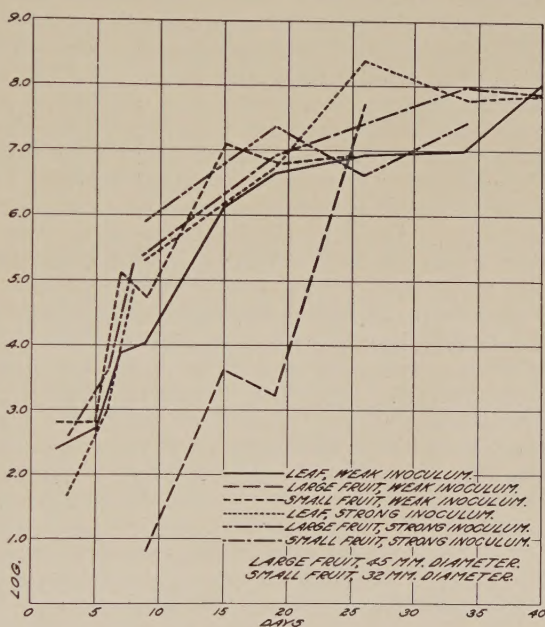 9.0
8.0
7.0
6.0
5.0
4.0
3.0
2.0
1.0
LOG.
LEAF, WEAK INOCULUM.
LARGE FRUIT, WEAK INOCULUM.
SMALL FRUIT, WEAK INOCULUM.
LEAF, STRONG INOCULUM.
LARGE FRUIT, STRONG INOCULUM.
SMALL FRUIT, STRONG INOCULUM.
LARGE FRUIT, 45 MM. DIAMETER.
SMALL FRUIT, 32 MM. DIAMETER.
0 5 10 15 20 25 30 35 40
DAYS